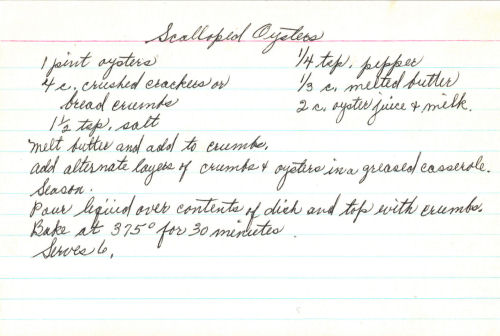 Scalloped Oysters
1 pint oysters
4 c. crushed crackers or
bread crumbs
1 1/2 tsp. salt
1/4 tsp. pepper
1/3 c. melted butter
2 c. oyster juice & milk.
Melt butter and add to crumbs.
Add alternate layers of crumbs & oysters in a greased casserole.
Season.
Pour liquid over contents of dish and top with crumbs.
Bake at 375° for 30 minutes.
Serves 6.